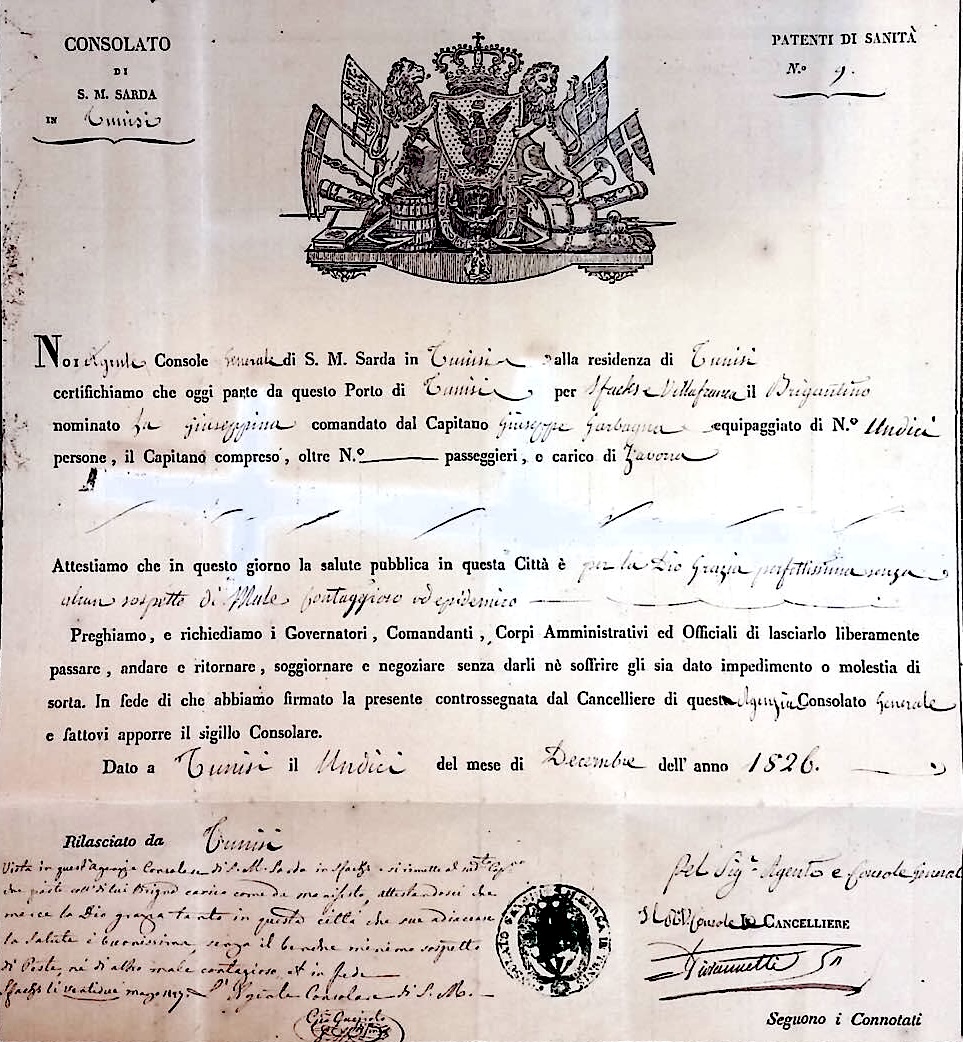 CONSOLATO
DI
S. M. SARDA
IN Tunisi
PATENTI DI SANITÀ
N.º 9.
NOI Agente Console Generale di S. M. Sarda in Tunisi alla residenza di Tunisi
certifichiamo che oggi parte da questo Porto di Tunisi per Sfachs e Villafranca il Brigantino
nominato La Giuseppina comandato dal Capitano Giuseppe Garbagna equipaggiato di N.º Undici
persone, il Capitano compreso, oltre N.º passeggieri, e carico di Zavorra
Attestiamo che in questo giorno la salute pubblica in questa Città è per la Dio Grazia perfettissima senza
alcun sospetto di Male Contaggioso od epidemico
Preghiamo, e richiediamo i Governatori, Comandanti, Corpi Amministrativi ed Officiali di lasciarlo liberamente
passare, andare e ritornare, soggiornare e negoziare senza darli nè soffrire gli sia dato impedimento o molestia di
sorta. In fede di che abbiamo firmato la presente controssegnata dal Cancelliere di questa Agenzia Consolato Generale
e fattovi apporre il sigillo Consolare.
Dato a Tunisi il Undici del mese di Decembre dell' anno 1826.
Rilasciato da Tunisi
Visto in quest'Agenzia Consolare di S. M. Sarda in Sfachs si rimette al
che parte col di lui Brigno carico come da manifesto, attestandosi che
merce la Dio grazia tanto in questa città che sue adiacenze
la Salute è buonissima, senza il benchè minimo sospetto
di Peste, nè di altro male contagioso, et in fede
Sfachs li ventidue marzo 1827. L'Agente Consolare di S. M.
pel Sig.r Agente e Console Generale
IL CANCELLIERE
Seguono i Connotati